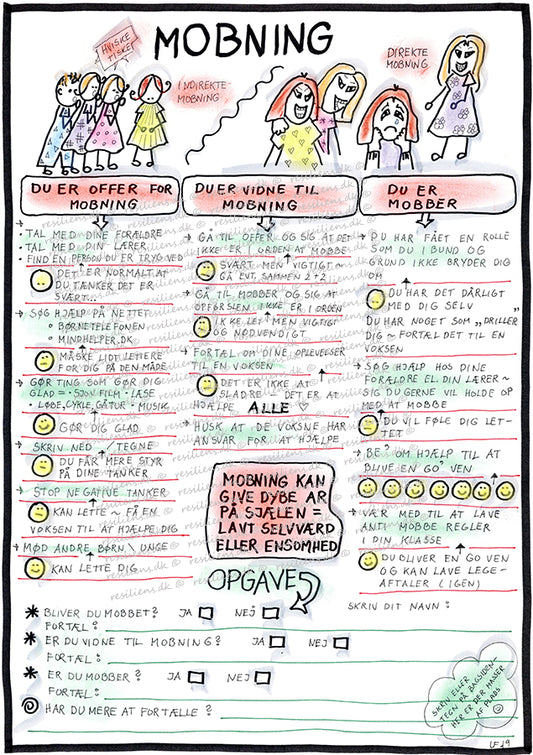 MOBNING
HVISKE
TISKE!
INDIREKTE
MOBNING
DIREKTE
MOBNING
DU ER OFFER FOR
MOBNING
TAL MED DINE FORÆLDRE
TAL MED DIN LÆRER
FIND EN PERSON DU ER TRYG VED
DET ER NORMALT AT
DU TÆNKER DET ER
SVÆRT...
SØG HJÆLP PÅ NETTET
• BØRNETELEFONEN
• MINDHELPER.DK
MÅSKE LIDT LETTERE
FOR DIG PÅ DEN MÅDE
GØR TING SOM GØR DIG
GLAD = • SJOV FILM • LÆSE
• LØBE, CYKLE, GÅTUR • MUSIK
GØR DIG GLAD
SKRIV NED / TEGNE
DU FÅR MERE STYR
PÅ DINE TANKER
STOP NEGATIVE TANKER
KAN LETTE ~ FÅ EN
VOKSEN TIL AT HJÆLPE DIG
MØD ANDRE BØRN \ UNGE
KAN LETTE DIG
DU ER VIDNE TIL
MOBNING
GÅ TIL OFFER OG SIG AT DET
IKKE ER I ORDEN AT MOBBE
SVÆRT MEN VIGTIGT ~
GÅ EVT. SAMMEN 2+2
GÅ TIL MOBBER OG SIG AT
OPFØRSLEN IKKE ER I ORDEN
IKKE LET MEN VIGTIGT
OG NØDVENDIGT
FORTÆL OM DINE OPLEVELSER
TIL EN VOKSEN
DET ER IKKE AT
SLADRE ~ DET ER AT
HJÆLPE ALLE ♡
HUSK AT DE VOKSNE HAR
ANSVAR FOR AT HJÆLPE
MOBNING KAN
GIVE DYBE AR
PÅ SJÆLEN =
LAVT SELVVÆRD
ELLER ENSOMHED
DU ER
MOBBER
DU HAR FÅET EN ROLLE
SOM DU I BUND OG
GRUND IKKE BRYDER DIG
OM
DU HAR DET DÅRLIGT
MED DIG SELV
DU HAR NOGET SOM „DRILLER"
DIG ~ FORTÆL DET TIL EN
VOKSEN
SØG HJÆLP HOS DINE
FORÆLDRE EL. DIN LÆRER ~
SIG DU GERNE VIL HOLDE OP
MED AT MOBBE
DU VIL FØLE DIG LET-
TET
BE' OM HJÆLP TIL AT
BLIVE EN GO' VEN
VÆR MED TIL AT LAVE
ANTI MOBBE REGLER
I DIN KLASSE
DU BLIVER EN GO VEN
OG KAN LAVE LEGE-
AFTALER (IGEN)
OPGAVE
SKRIV DIT NAVN:
* BLIVER DU MOBBET? JA NEJ
FORTÆL:
* ER DU VIDNE TIL MOBNING? JA NEJ
FORTÆL:
* ER DU MOBBER? JA NEJ
FORTÆL:
HAR DU MERE AT FORTÆLLE?
SKRIV ELLER
TEGN PÅ BAGSIDEN-
HER ER DER MASSER
AF PLADS
LF 19
resiliens.dk ©